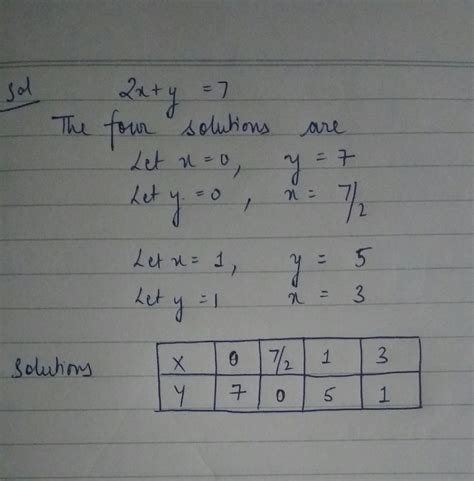 Sol 2x + y = 7
The four solutions are
Let x = 0, y = 7
Let y = 0, x = 7/2
Let x = 1, y = 5
Let y = 1 x = 3
Solutions
X 0 7/2 1 3
Y 7 0 5 1